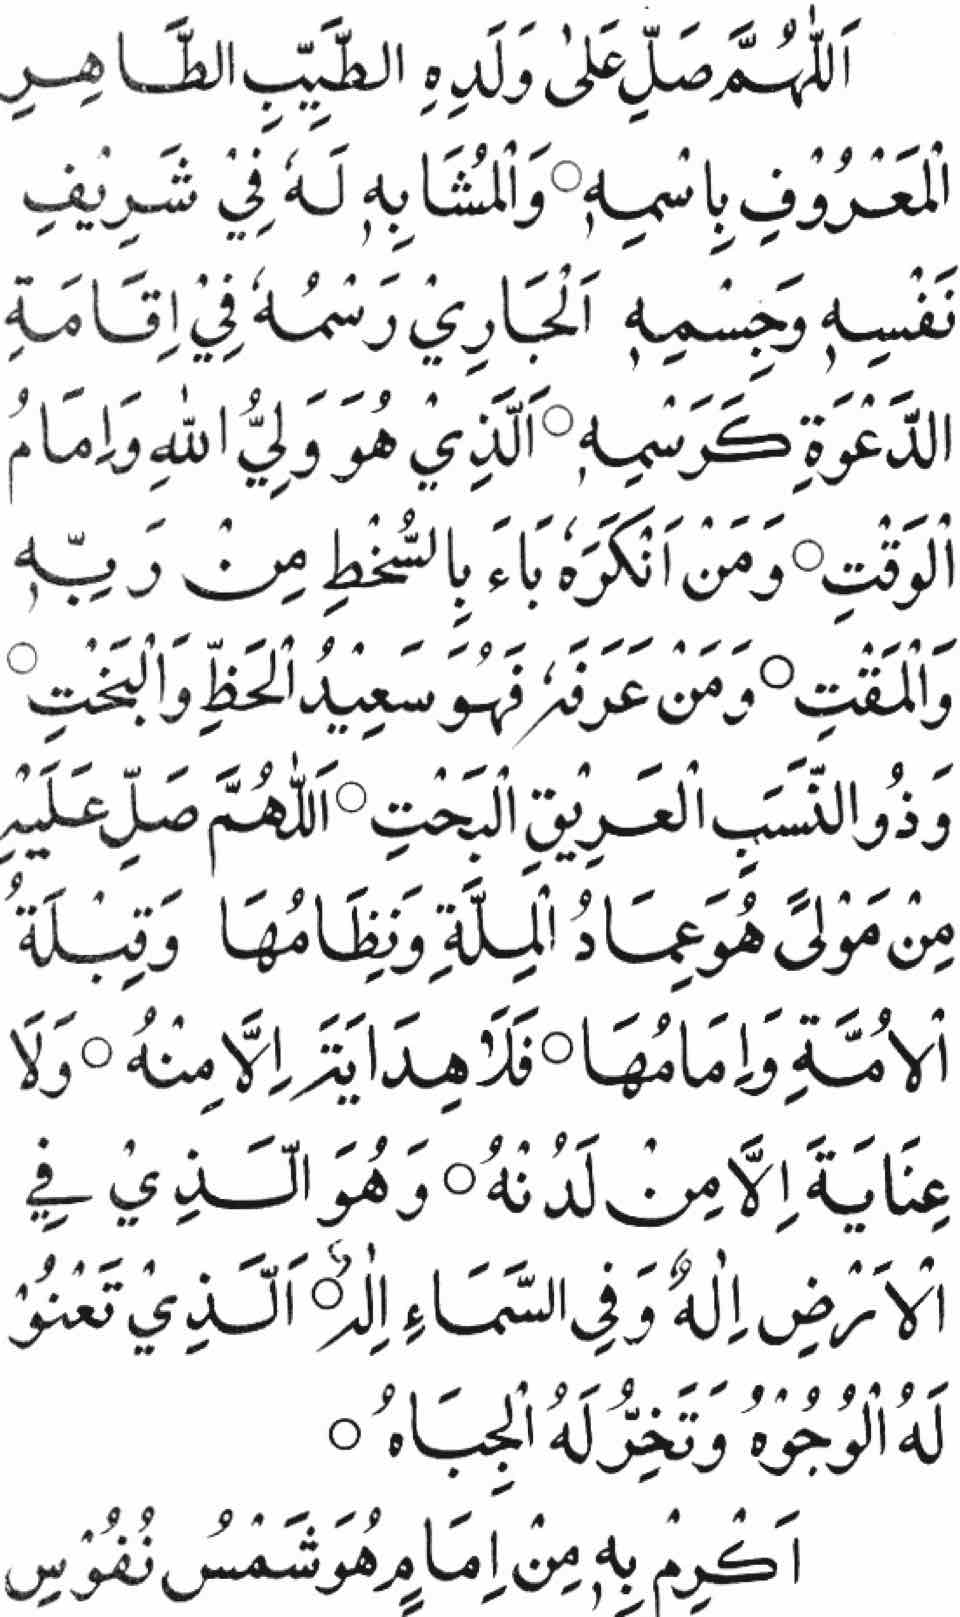 اَللّٰهُمَّ صَلِّ عَلىٰ وَلَدِهِ الطَّيِّبِ الطَّاهِرِ
الْمَعْرُوْفِ بِاسْمِهٖ ○ وَالْمُشَابِهِ لَهٗ فِيْ شَرِيْفِ
نَفْسِهٖ وَجِسْمِهٖ اَلْجَارِيْ رَسْمُهٗ فِيْ اِقَامَةِ
الدَّعْوَةِ كَرَسْمِهٖ ○ اَلَّذِيْ هُوَ وَلِيُّ اللهِ وَاِمَامُ
الْوَقْتِ ○ وَمَنْ اَنْكَرَهٗ بَاءَ بِالسُّخْطِ مِنْ رَبِّهٖ
وَالْمَقْتِ ○ وَمَنْ عَرَفَهٗ فَهُوَ سَعِيْدُ الْحَظِّ وَالْبَخْتِ ○
وَذُو النَّسَبِ الْعَرِيْقِ الْبَحْتِ ○ اَللّٰهُمَّ صَلِّ عَلَيْهِ
مِنْ مَوْلىً هُوَ عِمَادُ الْمِلَّةِ وَنِظَامُهَا وَقِبْلَةُ
الْاُمَّةِ وَاِمَامُهَا ○ فَلَا هِدَايَةَ اِلَّا مِنْهُ ○ وَلَا
عِنَايَةَ اِلَّا مِنْ لَدُنْهُ ○ وَهُوَ الَّذِيْ فِي
الْاَرْضِ اِلٰهٌ وَفِي السَّمَاءِ اِلٰهٌ ○ اَلَّذِيْ تَعْنُوْ
لَهُ الْوُجُوْهُ وَتَخِرُّ لَهُ الْجِبَاهُ ○
اَكْرِمْ بِهٖ مِنْ اِمَامٍ هُوَ شَمْسُ نُفُوْسِ